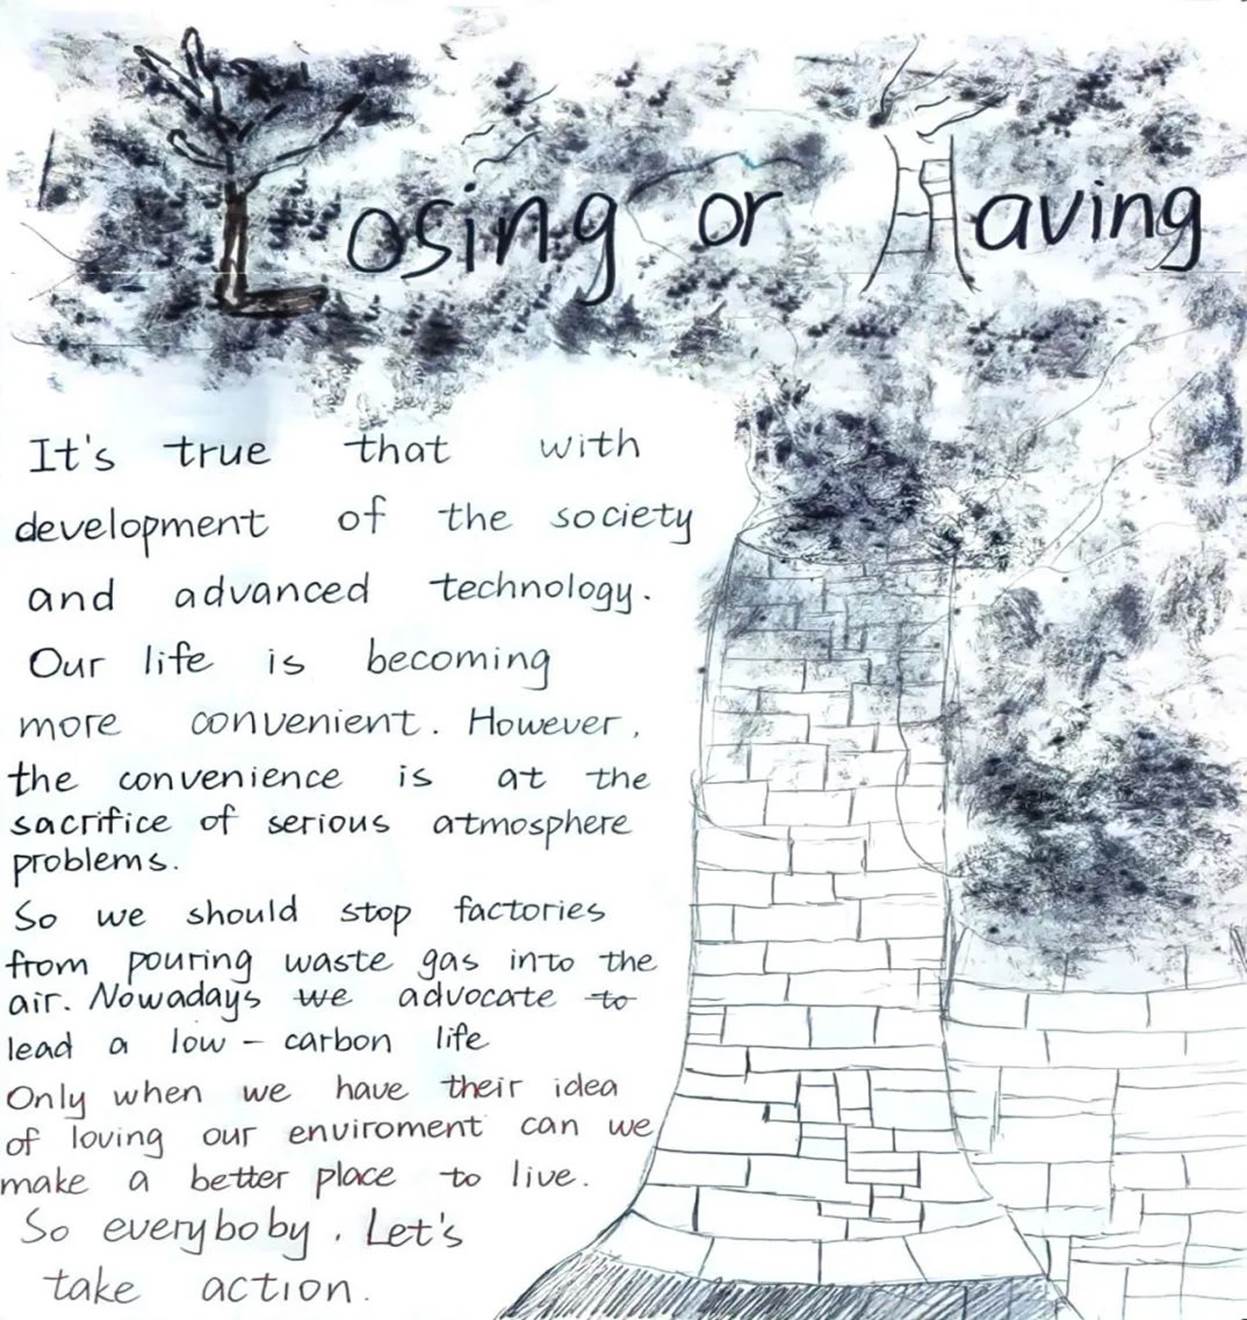 Losing or Having
It's true that with
development of the society
and advanced technology.
Our life is becoming
more convenient. However,
the convenience is at the
sacrifice of serious atmosphere
problems.
So we should stop factories
from pouring waste gas into the
air. Nowadays we advocate to
lead a low - carbon life
Only when we have their idea
of loving our enviroment can we
make a better place to live.
So everyboby. Let's
take action.